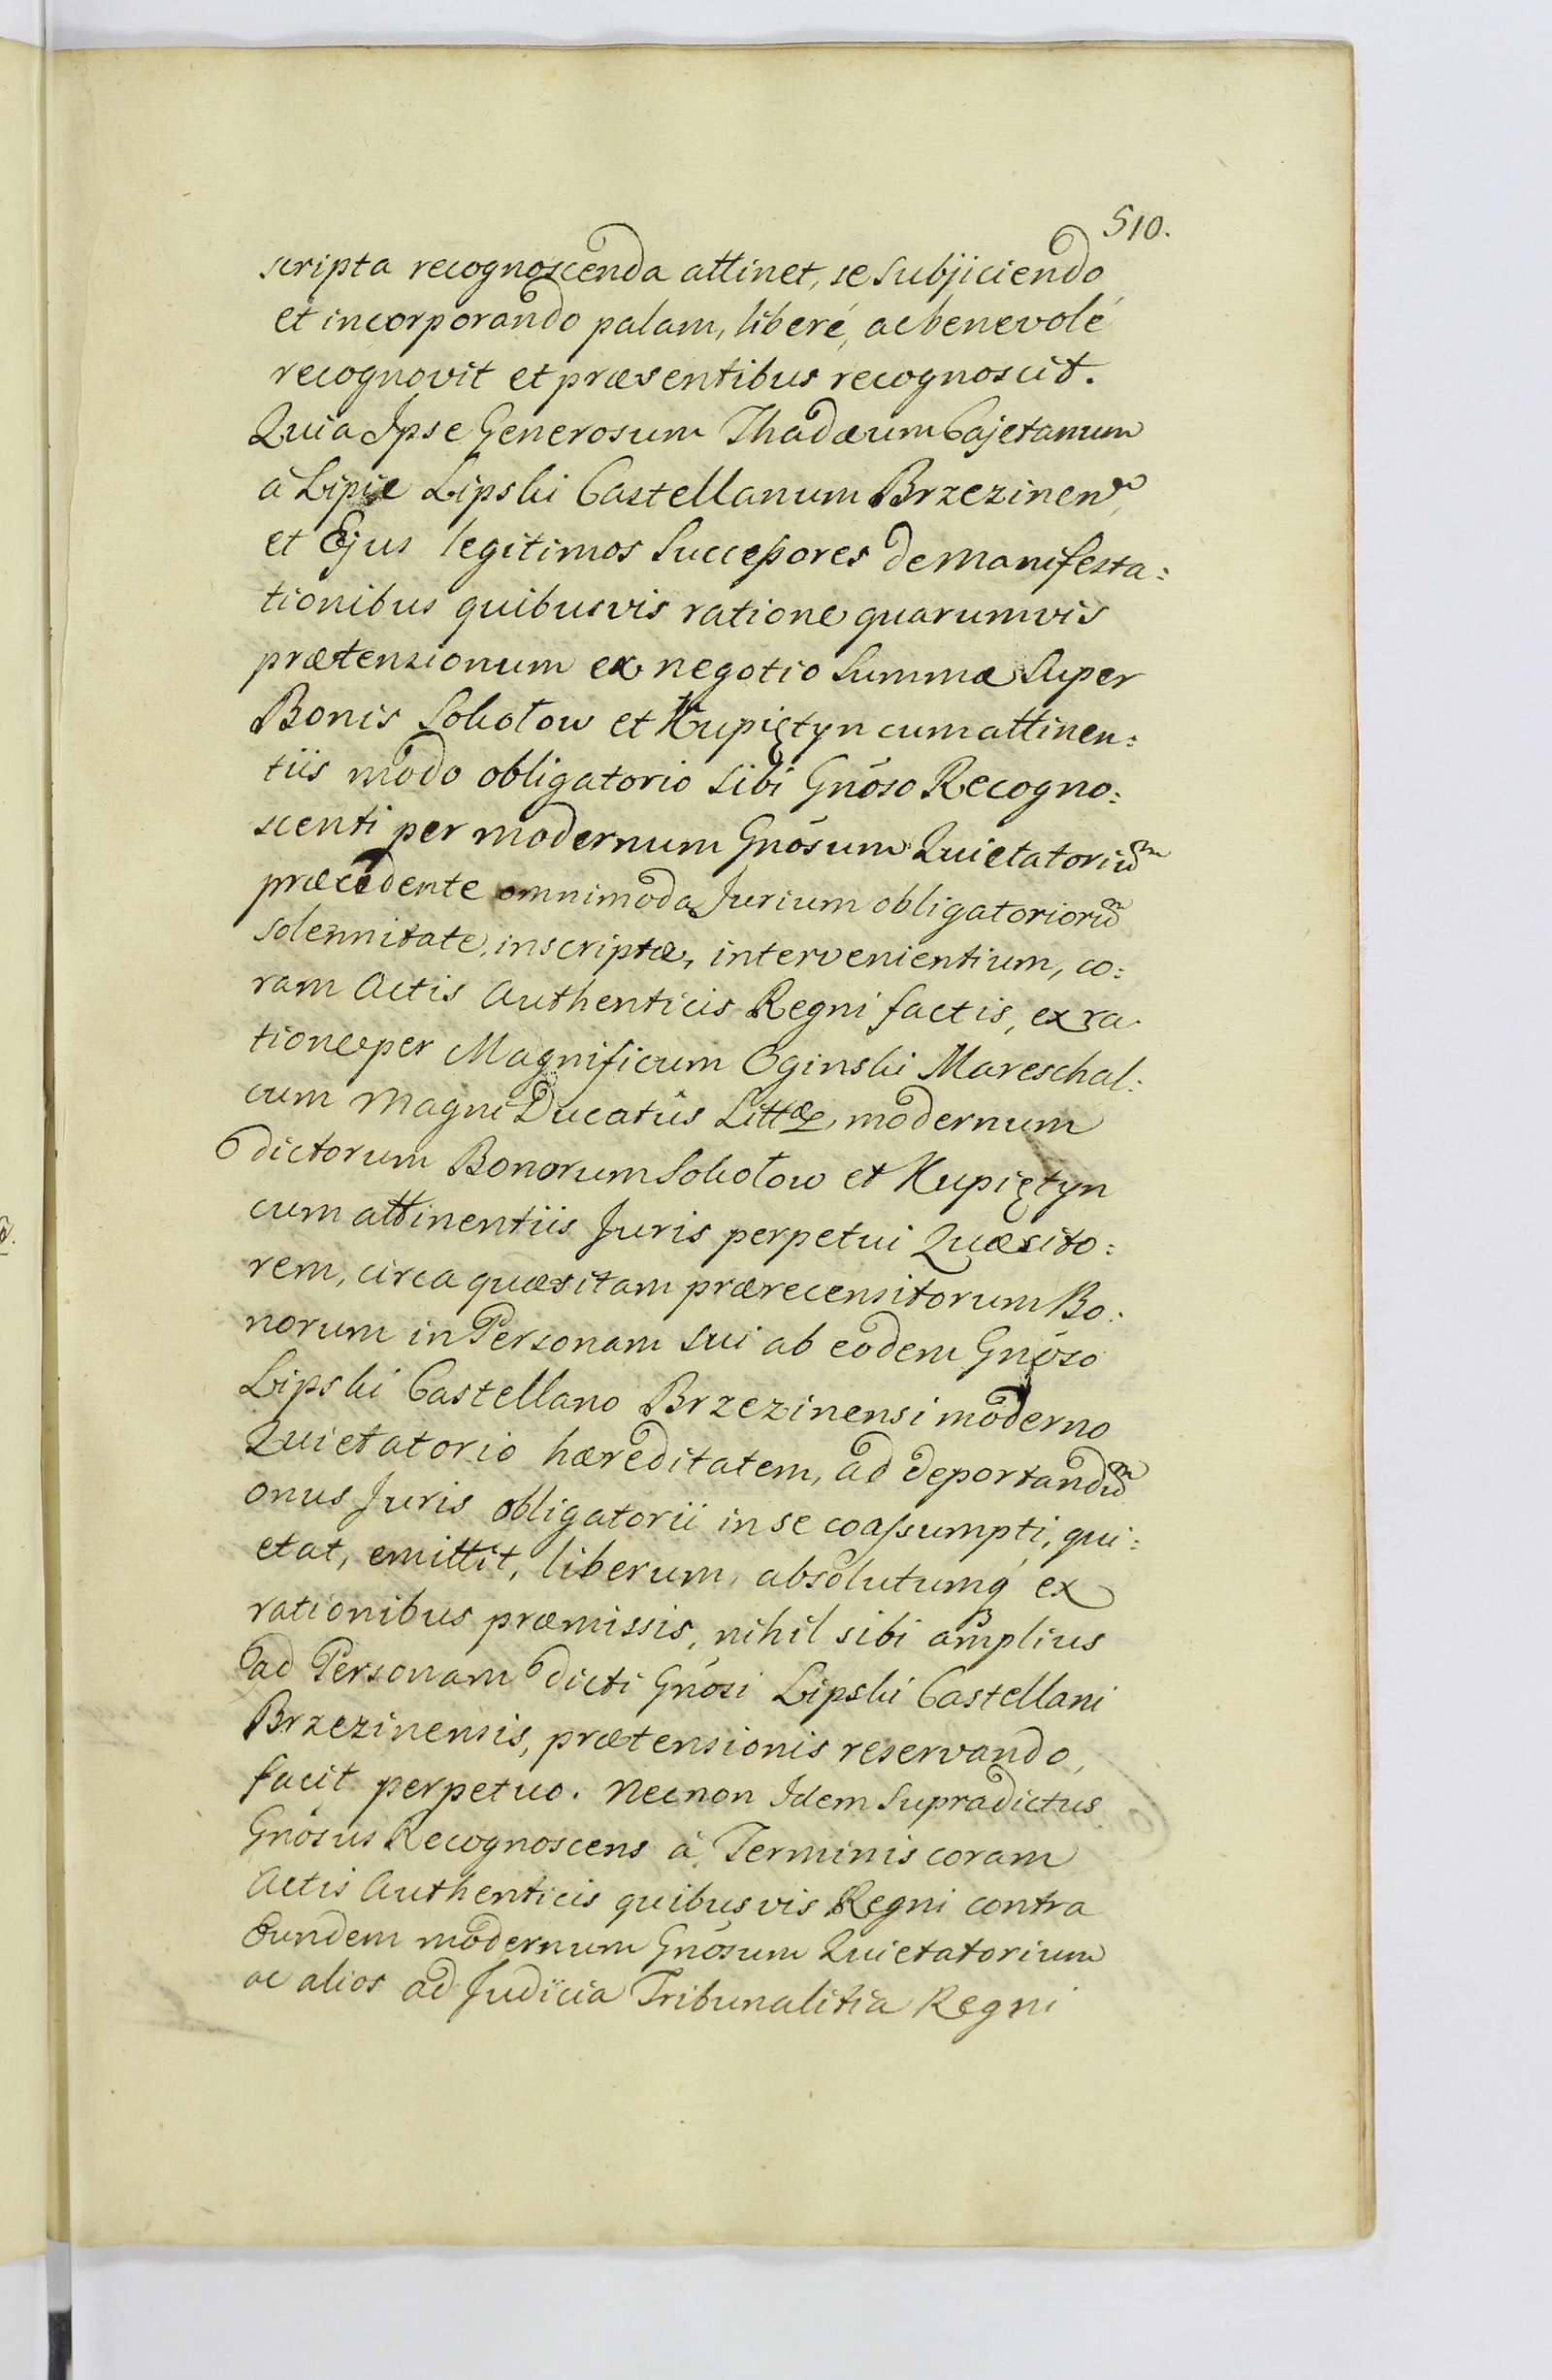 510.
scripta recognoscenda attinet, se Subjiciendo
et incorporando palam, liberé, ac benevolé
recognovit et præsentibus recognoscit.
Quia Ipse Generosum Thadæum Cajetanum
à Lipie Lipski Castellanum Brzezinen
et Ejus legitimos Succeßores de Manifesta:
tionibus quibusvis ratione quarumvis
prætensionum ex negotio Summæ Super
Bonis Sokołow et Kupiętyn cum attinen:
tiis modo obligatorio sibi Gnõso Recogno:
scenti per modernum Gnõsum Quietatoriũ
præcedente omnimoda Jurium obligatoriorũ
solennitate, inscriptæ, intervenientium, co:
ram Actis Authenticis Regni factis, ex ra
tione per Magnificum Oginski Mareschal:
cum Magni Ducatûs Littæ, modernum
dictorum Bonorum Sokołow et Kupiętyn
cum attinentiis Juris perpetui Quæsito:
rem, circa quæsitam prærecensitorum Bo:
norum in Personam Sui ab eodem Gnõso
Lipski Castellano Brzezinensi moderno
Quietatorio hæreditatem, ad deportandũ
onus Juris obligatorii in se coaſsumpti, qui:
etat, emittit, liberum, absolutumq́ ex
rationibus præmissis, nihil sibi amplius
ad Personam dicti Gnõsi Lipski Castellani
Brzezinensis, prætensionis reservando,
facit perpetuo. Necnon Idem Supradictus
Gnõsus Recognoscens à Terminis coram
Actis Authenticis quibusvis Regni contra
Eundem modernum Gnõsum Quietatorium
ac alios ad Judicia Tribunalitia Regni